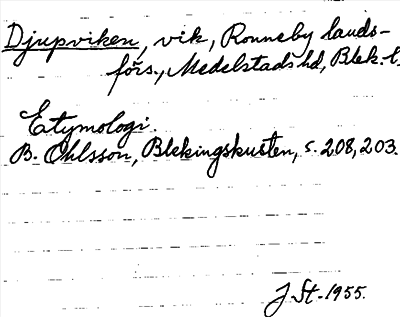 Djupviken, vik, Ronneby lands-
förs., Medelstads hd, Blek. l.
Etymologi.
B. Ohlsson, Blekingskusten, s. 208, 203.
J. St. 1955.